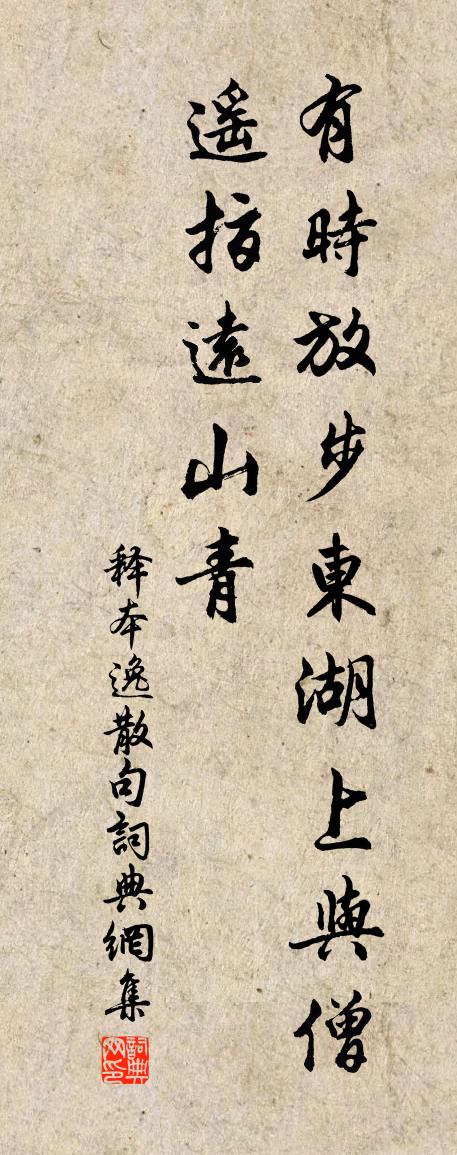 有時放步東湖上與僧
遥指遠山青
释本逸散句詞典網集
詞典网印